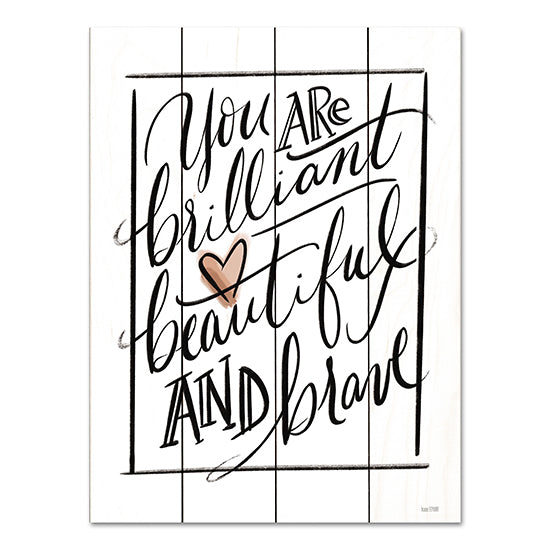 You ARe
brilliant
beautiful
AND brave